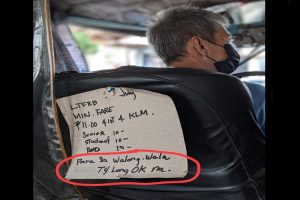 LTFRB
MIN. FARE
₱11.00 1st 4 KLM.
Senior 10-
Student 10-
PWD 10-
Para sa Walang-Wala
TY Lang OK na.